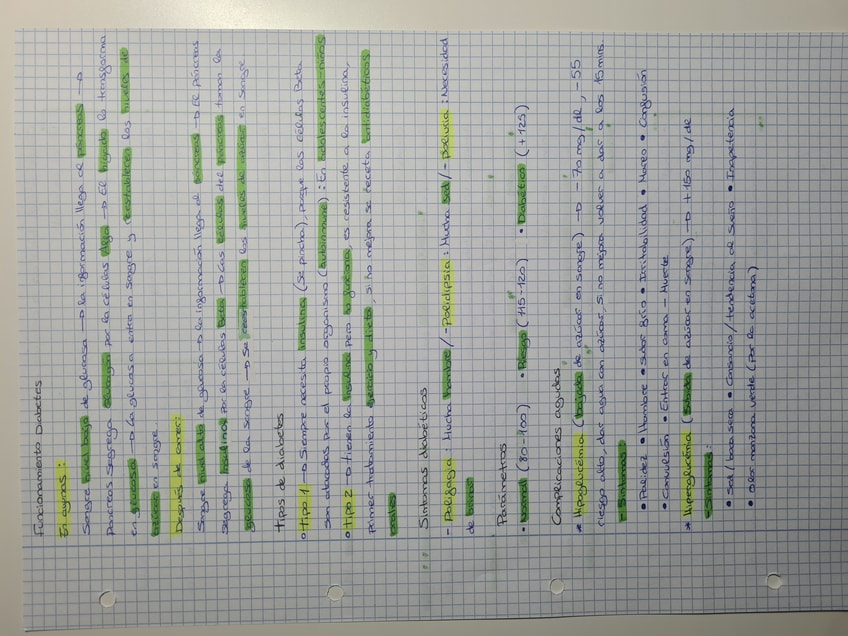 Funcionamiento Diabetes
En ayunas:
Sangre nivel bajo de glucosa → la información llega al páncreas →
Páncreas segrega Glucagón por la células Alfa → El hígado lo transforma
en glucosa → La glucosa entra en sangre y reestablecen los niveles de
azúcar en sangre
Después de comer:
Sangre nivel alto de glucosa → la información llega al páncreas → El páncreas
segrega Insulina por la células Beta → Las células del páncreas toman la
glucosa de la sangre → Se reestablecen los niveles de azúcar en sangre
Tipos de diabetes
• Tipo 1 → Siempre necesita insulina (se pincha), porque las células Beta
son atacadas por el propio organismo (autoinmune): En adolescentes-niños
• Tipo 2 → tienen la insulina pero no funciona, es resistente a la insulina,
primer tratamiento ejercicio y dieta, si no mejora se receta antidiabéticos
orales
Síntomas diabéticos
- Polifagia: Mucha hambre / - Polidipsia: Mucha sed / - Poliuria: Necesidad
de
Parámetros
• Normal (80-100) • Riesgo (115-120) • Diabético (+125)
Complicaciones agudas
* Hipoglucémia (bajada de azúcar en sangre) → -70 mg/dl, -55
riesgo alto, dar agua con azúcar, si no mejora volver a dar a los 15 mins.
- Síntomas:
• Palidez • Hambre • Sudor frío • Irritabilidad • Mareo • Confusión
• Convulsión • Entrar en coma - Muerte
* Hiperglucémia (Subida de azúcar en sangre) → +150 mg/dl
- Síntomas:
• Sed / boca seca • Cansancio / tendencia al sueño • Inapetencia
• Olor manzana verde (por la acetona)